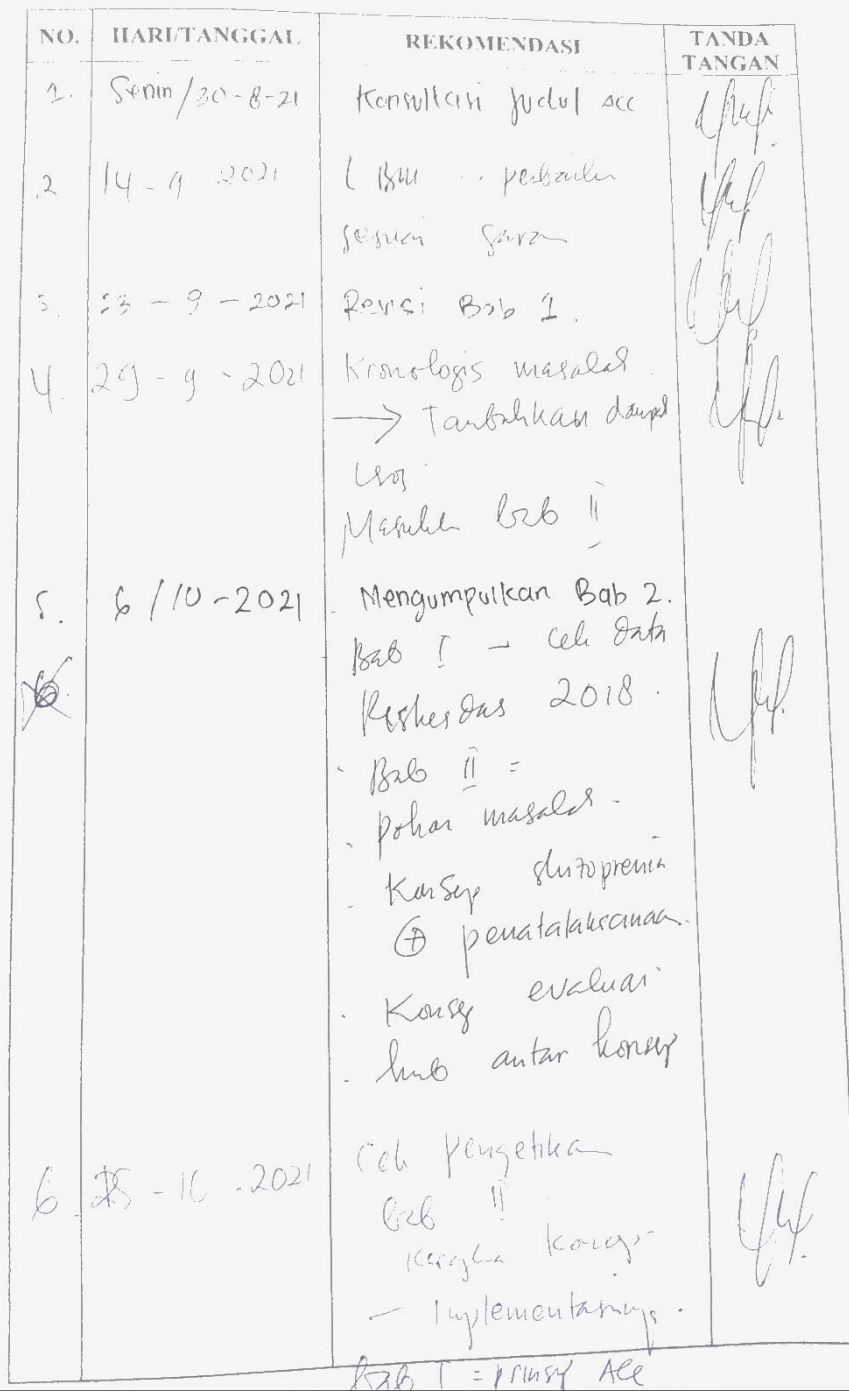 NO. HARI/TANGGAL REKOMENDASI TANDA TANGAN
1. Senin/30-8-21 Konsultasi judul acc
2 14-9 2021 LBM perbaiki
sesuai saran
3. 23-9-2021 Revisi Bab 1.
4. 29-9-2021 Kronologis masalah
→ Tambahkan dampak
Masukkan bab II
5. 6/10-2021 Mengumpulkan Bab 2.
Bab I - Cek data
6. Riskesdas 2018.
. Bab II =
. pohon masalah.
. Konsep skizoprenia
+ penatalaksanaan.
. Konsep evaluasi
. hub antar konsep
6. 25-10-2021 Cek pengetikan
bab II
Kerangka konsep
- Implementasinya.
bab I = prinsip ACC